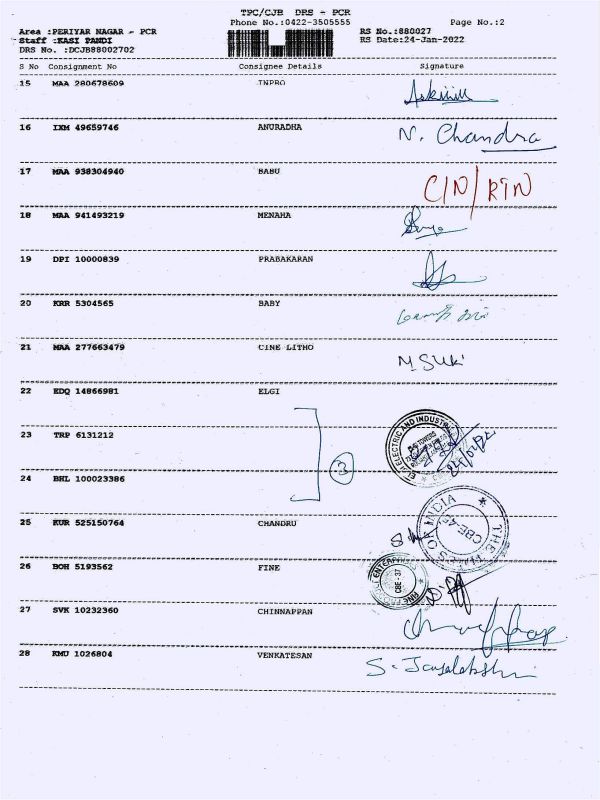 TPC/CJB DRS - PCR
Phone No.:0422-3505555 Page No.:2
Area :PERIYAR NAGAR - PCR RS No.:880027
Staff :KASI PANDI RS Date:24-Jan-2022
DRS No. :DCJB88002702
S No Consignment No Consignee Details Signature
15 MAA 280678609 INPRO
16 IXM 49659746 ANURADHA N. Chandra
17 MAA 938304940 BABU C/N/RTN
18 MAA 941493219 MENAHA
19 DPI 10000839 PRABAKARAN
20 KRR 5304565 BABY
21 MAA 277663479 CINE LITHO M SUKi
22 EDQ 14866981 ELGI
23 TRP 6131212 ELGI ELECTRIC AND INDUSTR
3
24 BHL 100023386
25 KUR 525150764 CHANDRU THE TIMES OF INDIA CBE-45
26 BOH 5193562 FINE ENTERPRI CBE-37 FINE
27 SVK 10232360 CHINNAPPAN
28 KMU 1026804 VENKATESAN S. Jayalakshmi